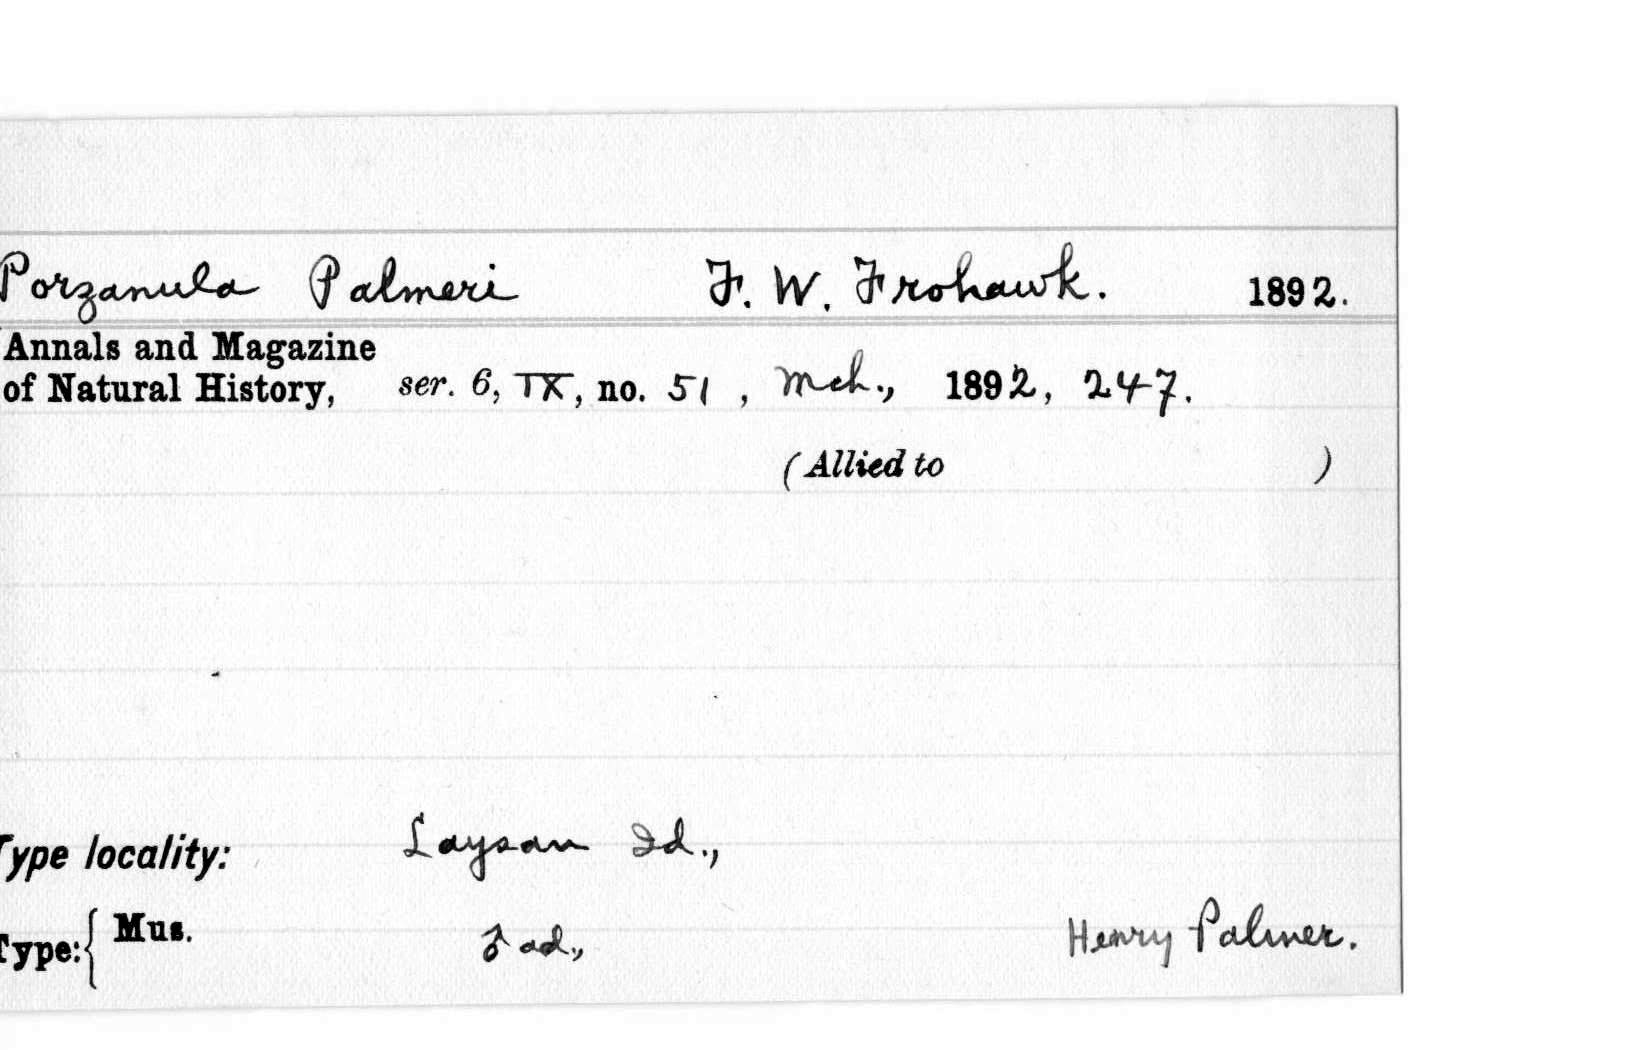 Porzanula Palmeri F. W. Frohawk. 1892.
Annals and Magazine
of Natural History, ser. 6, IX, no. 51, Mch., 1892, 247.
(Allied to )
Type locality: Laysan Id.,
Type: { Mus. ♂ ad., Henry Palmer.